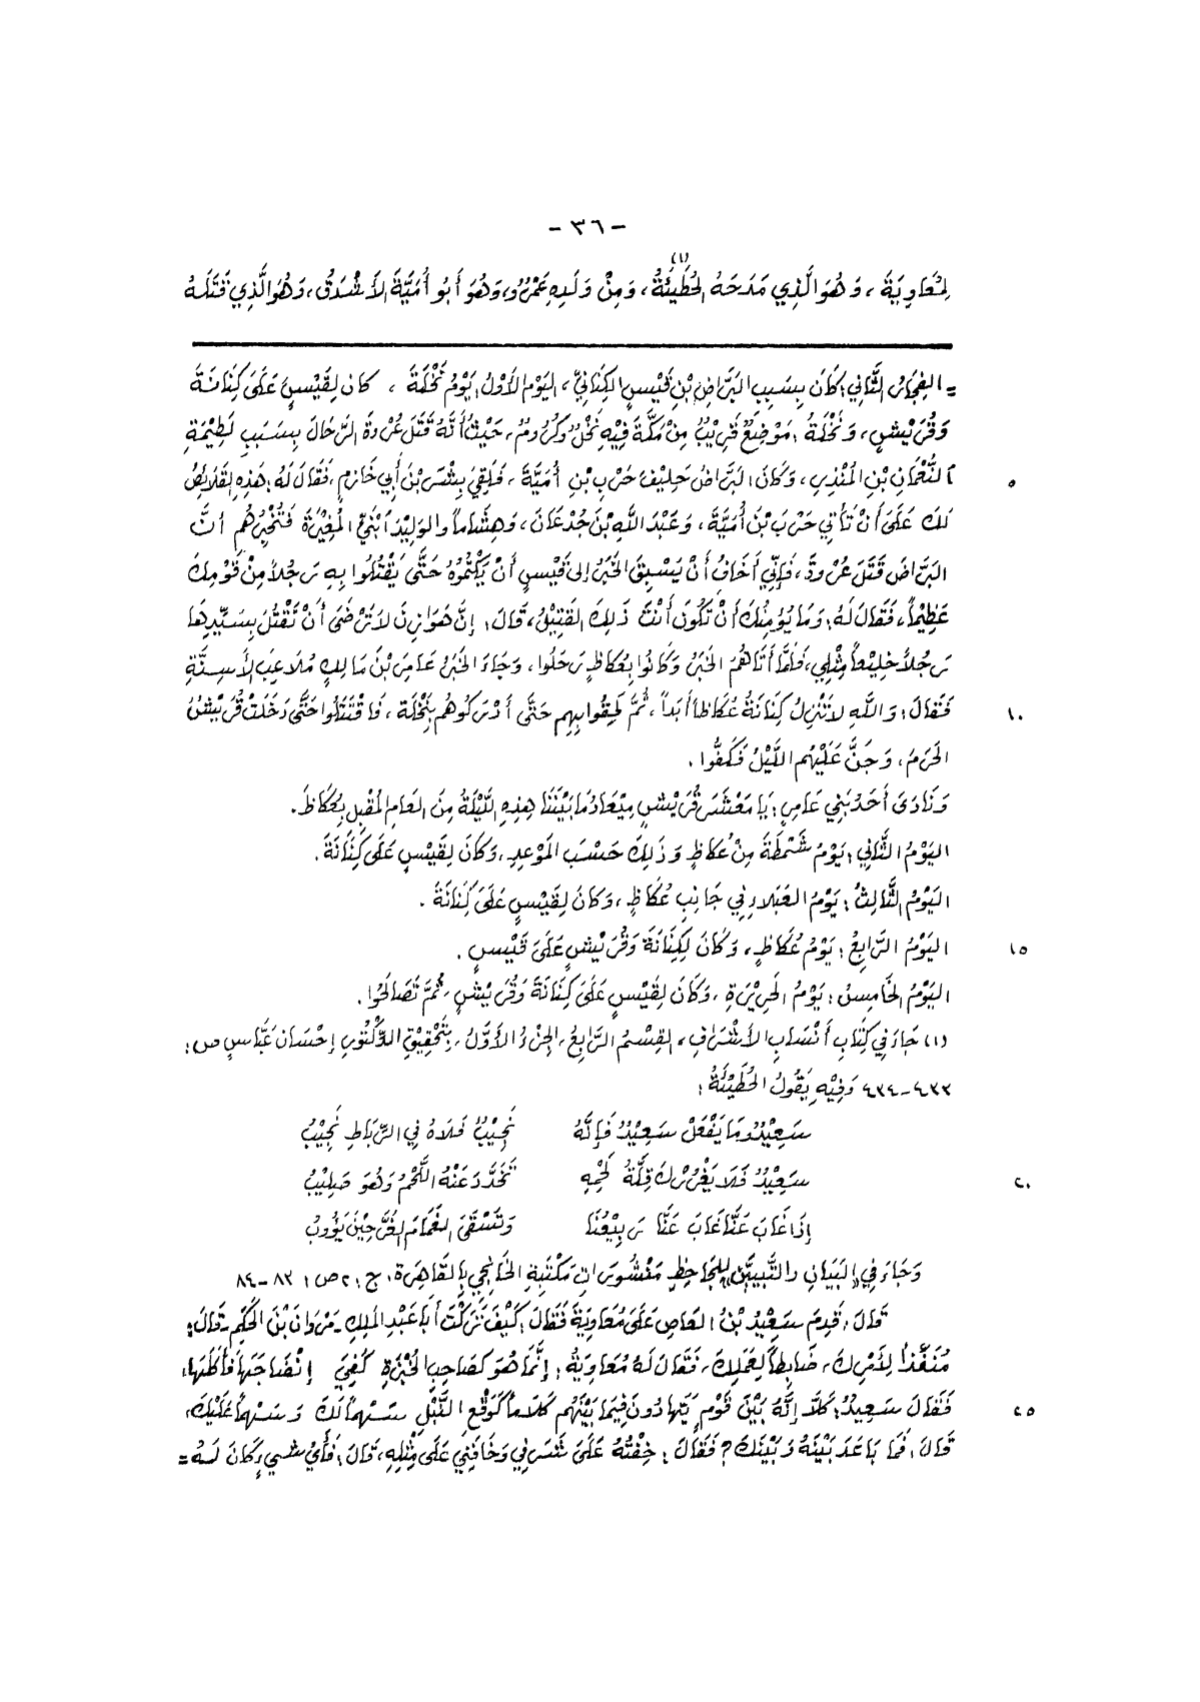 - ٣٦ -
لِمُعَاوِيَةَ، وَهُوَ الَّذِي مَدَحَهُ الحُطَيْئَةُ(١)، وَمِنْ وَلَدِهِ عَمْرُو، وَهُوَ أَبُو أُمَيَّةَ الأَشْدَقُ، وَهُوَ الَّذِي قَتَلَهُ
= الفِجَارُ الثَّانِي: كَانَ بِسَبَبِ البَرَّاضِ بْنِ قَيْسٍ الكِنَانِيِّ، اليَوْمُ الأَوَّلُ: يَوْمُ نَخْلَةَ، كَانَ لِقَيْسٍ عَلَى كِنَانَةَ
وَقُرَيْشٍ، وَنَخْلَةُ: مَوْضِعٌ قَرِيْبٌ مِنْ مَكَّةَ فِيْهِ نَخْلٌ وَكُرُومٌ، حَيْثُ أَنَّهُ قَتَلَ عُرْوَةَ الرَّحَّالَ بِسَبَبِ لَطِيْمَةِ
٥ النُّعْمَانِ بْنِ المُنْذِرِ، وَكَانَ البَرَّاضُ حَلِيْفَ حَرْبِ بْنِ أُمَيَّةَ، فَلَقِيَ بِشْرَ بْنَ أَبِي خَازِمٍ، فَقَالَ لَهُ: هَذِهِ القَلَائِصُ
لَكَ عَلَى أَنْ تَأْتِي حَرْبَ بْنَ أُمَيَّةَ، وَعَبْدَ اللَّهِ بْنَ جُدْعَانَ، وَهِشَاماً وَالوَلِيْدَ ابْنَيِّ المُغِيْرَةِ فَتُخْبِرُهُم أَنَّ
البَرَّاضَ قَتَلَ عُرْوَةَ، فَإِنِّي أَخَافُ أَنْ يَسْبِقَ الخَبَرُ إِلَى قَيْسٍ أَنْ يَكْتُمُوهُ حَتَّى يَقْتُلُوا بِهِ رَجُلاً مِنْ قَوْمِكَ
عَظِيْماً، فَقَالَ لَهُ: وَمَا يُؤَمِّنُكَ أَنْ تَكُونَ أَنْتَ ذَلِكَ القَتِيْلُ، قَالَ: إِنَّ هَوَازِنَ لَا تَرْضَى أَنْ تَقْتُلَ بِسَيِّدِهَا
رَجُلاً خَلِيْعاً مِثْلِي، فَلَمَّا أَتَاهُمُ الخَبَرُ وَكَانُوا بِعُكَاظٍ رَحَلُوا، وَجَاءَ الخَبَرُ عَامِرَ بْنَ مَالِكٍ مُلَاعِبَ الأَسِنَّةِ
١٠ فَقَالَ: وَاللَّهِ لَا تَنْزِلُ كِنَانَةُ عُكَاظاً أَبَداً، ثُمَّ لَحِقُوا بِهِم حَتَّى أَدْرَكُوهُم بِنَخْلَةَ، فَاقْتَتَلُوا حَتَّى دَخَلَتْ قُرَيْشُ
الحَرَمَ، وَجَنَّ عَلَيْهِم اللَّيْلُ فَكَفُّوا.
وَنَادَى أَحَدُ بَنِي عَامِرٍ: يَا مَعْشَرَ قُرَيْشٍ مِيْعَادُ مَا بَيْنَنَا هَذِهِ اللَّيْلَةُ مِنَ العَامِ المُقْبِلِ بِعُكَاظَ.
اليَوْمُ الثَّانِي: يَوْمُ شَمْطَةَ مِنْ عُكَاظٍ وَذَلِكَ حَسْبَ المَوْعِدِ، وَكَانَ لِقَيْسٍ عَلَى كِنَانَةَ.
اليَوْمُ الثَّالِثُ: يَوْمُ العَبَلَاءِ فِي جَانِبِ عُكَاظٍ، وَكَانَ لِقَيْسٍ عَلَى كِنَانَةَ.
١٥ اليَوْمُ الرَّابِعُ: يَوْمُ عُكَاظٍ، وَكَانَ لِكِنَانَةَ وَقُرَيْشٍ عَلَى قَيْسٍ.
اليَوْمُ الخَامِسُ: يَوْمُ الحَرِيْرَةِ، وَكَانَ لِقَيْسٍ عَلَى كِنَانَةَ وَقُرَيْشٍ، ثُمَّ تَصَالَحُوا.
(١) جَاءَ فِي كِتَابِ أَنْسَابِ الأَشْرَافِ، القِسْمُ الرَّابِعُ، الجُزْءُ الأَوَّلُ، بِتَحْقِيْقِ الدُّكْتُورِ إِحْسَانَ عَبَّاسٍ ص:
٤٣٣-٤٣٤ وَفِيْهِ يَقُولُ الحُطَيْئَةُ:
سَعِيْدٌ وَمَا يَفْعَلْ سَعِيْدٌ فَإِنَّهُ نَجِيْبٌ فَلَاهُ فِي الرِّبَاطِ نَجِيْبُ
٢٠ سَعِيْدٌ فَلَا يَغْرُرْكَ قِلَّةُ لَحْمِهِ تَخَدَّدَ عَنْهُ اللَّحْمُ وَهُوَ صَلِيْبُ
إِذَا غَابَ عَنَّا غَابَ عَنَّا رَبِيْعُنَا وَنَسْقَى الغَمَامَ الغُرَّ حِيْنَ يَؤُوبُ
وَجَاءَ فِي «البَيَانِ وَالتَّبْيِيْنِ» لِلجَاحِظِ مَنْشُورَاتِ مَكْتَبَةِ الخَانْجِي بِالقَاهِرَةِ، ج: ٢ ص: ٨٣-٨٤
قَالَ: قَدِمَ سَعِيْدُ بْنُ العَاصِ عَلَى مُعَاوِيَةَ فَقَالَ: كَيْفَ تَرَكْتَ أَبَا عَبْدِ المَلِكِ - مَرْوَانَ بْنَ الحَكَمِ - قَالَ:
مُنَفِّذاً لِأَمْرِكَ، ضَابِطاً لِعَمَلِكَ، فَقَالَ لَهُ مُعَاوِيَةُ: إِنَّمَا هُوَ كَصَاحِبِ الخُبْزَةِ كُفِيَ إِنْضَاجَهَا فَأَكَلَهَا،
٢٥ فَقَالَ سَعِيدٌ: كَلَّا إِنَّهُ بَيْنَ قَوْمٍ يَتَهَادُونَ فِيمَا بَيْنَهُم كَلَاماً كَوَقْعِ النَّبْلِ سَهْماً لَكَ وَسَهْماً عَلَيْكَ،
قَالَ: فَمَا بَاعَدَ بَيْنَهُ وَبَيْنَكَ؟ فَقَالَ: خِفْتُهُ عَلَى شَرَفِي وَخَافَنِي عَلَى مِثْلِهِ، قَالَ: فَأَيُّ شَيْءٍ كَانَ لَهُ =